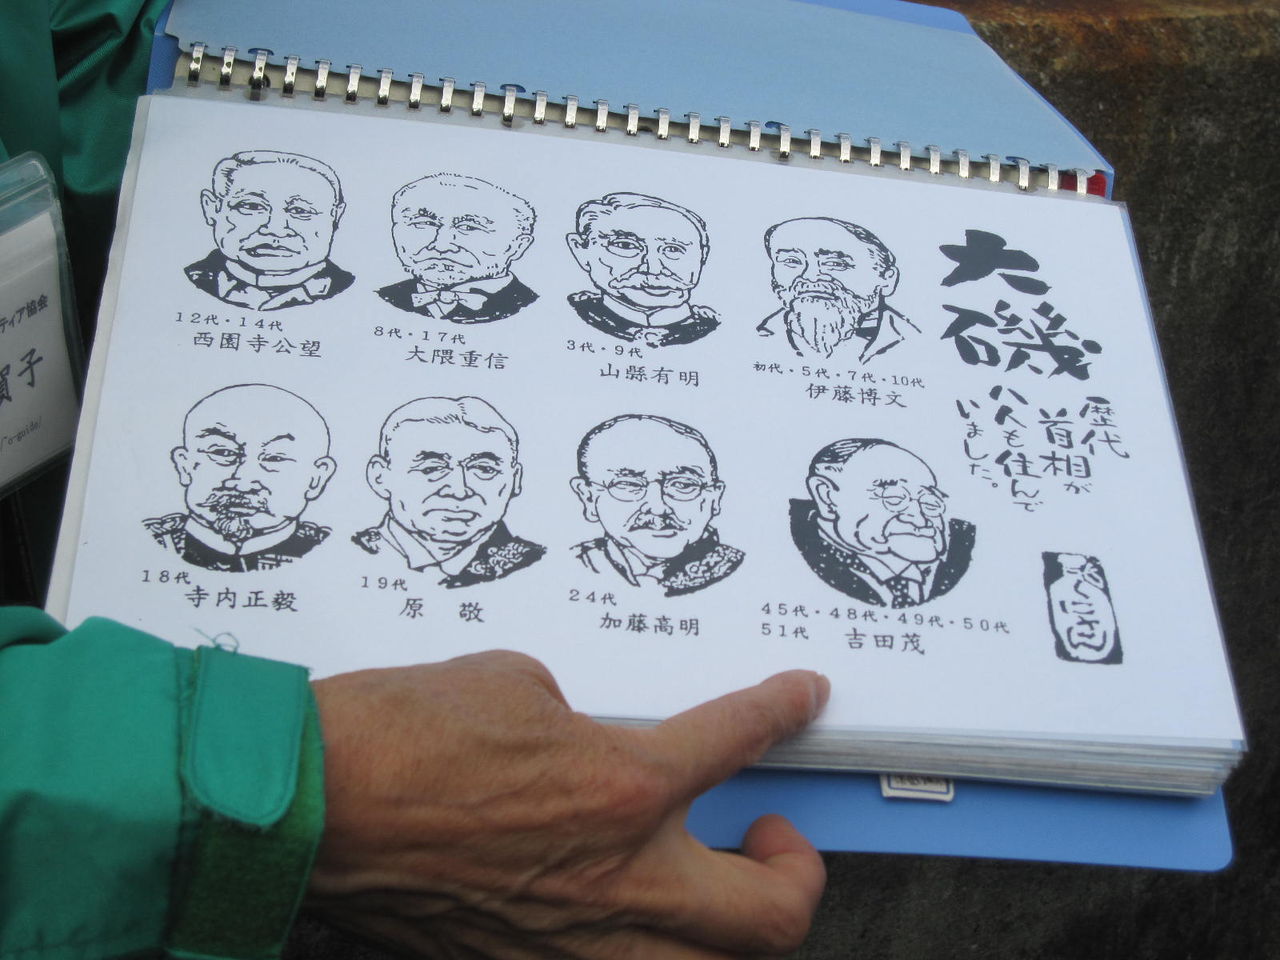 大磯
歴代
首相が
八人も住んで
いました。
12代・14代
西園寺公望
8代・17代
大隈重信
3代・9代
山縣有明
初代・5代・7代・10代
伊藤博文
18代
寺内正毅
19代
原 敬
24代
加藤高明
45代・48代・49代・50代
51代
吉田茂
ティア協会
賀子
o-guide/